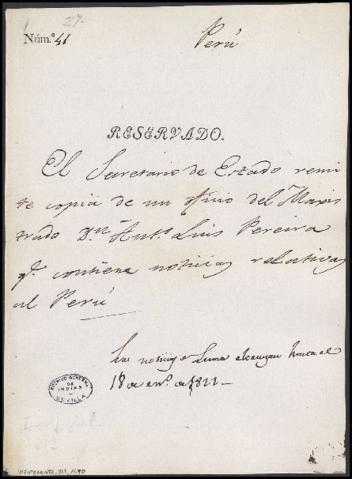 27.
Núm.º 41
Perú
RESERVADO.
El Secretario de Estado remi
te copia de un oficio del Magis
trado Dn. Antº. Luis Pereira
qe. contiene noticias relativas
al Perú
Las noticias de Lima alcanzan hasta el
18 de enº. de 1822
ARCHIVO GENERAL
DE
INDIAS
SEVILLA